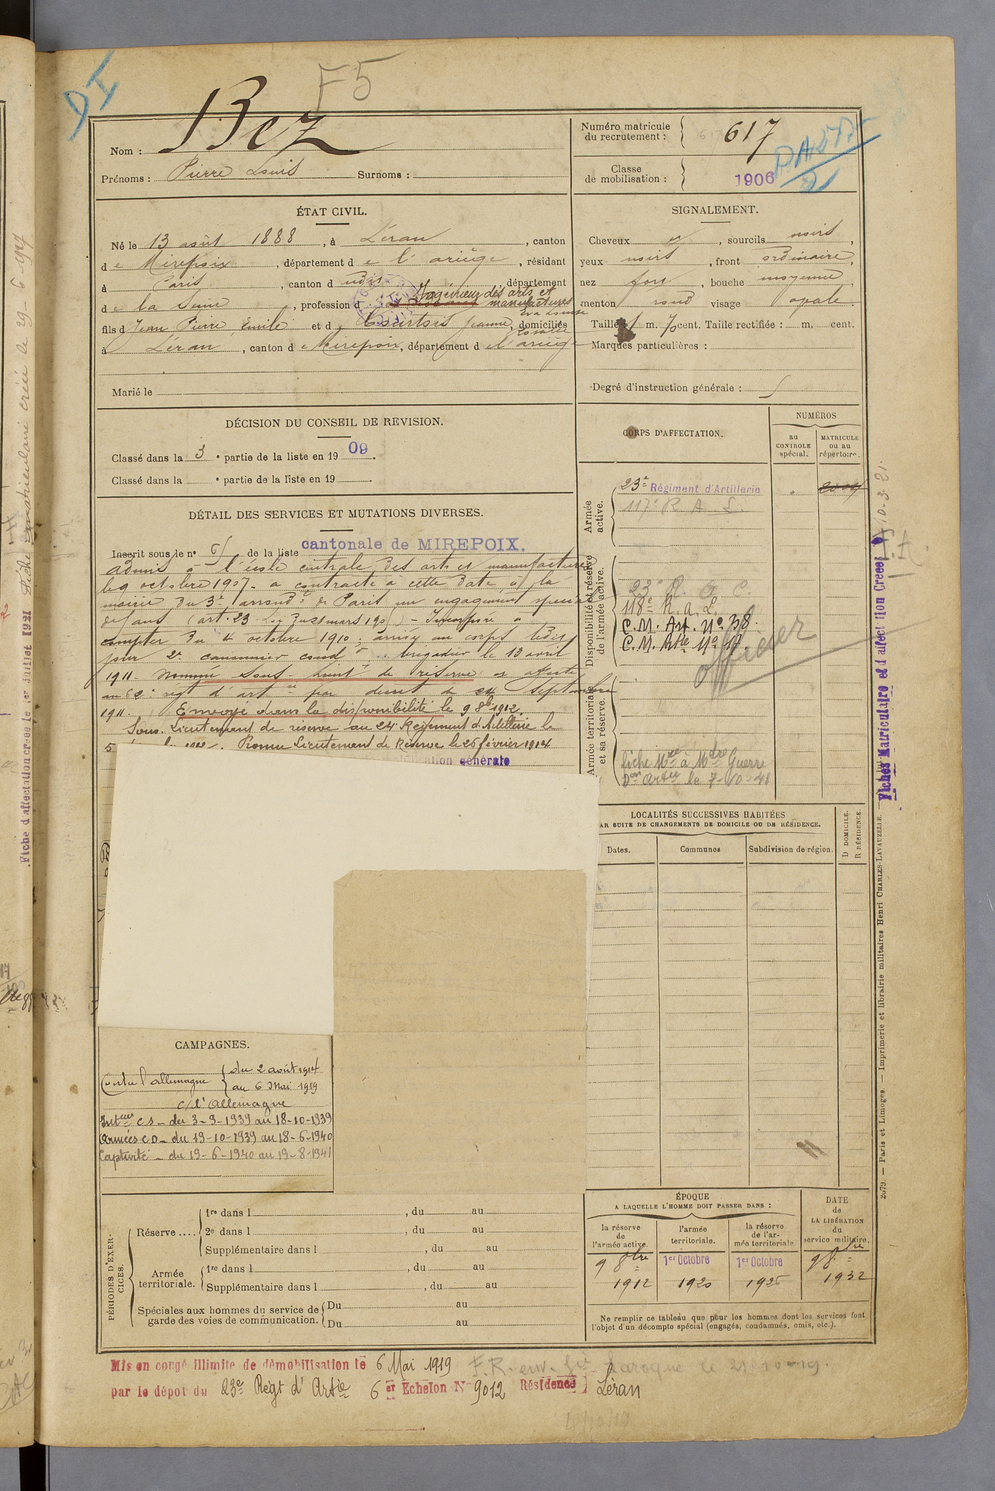 DI
F5
Nom : Bez
Prénoms : Pierre Louis Surnoms :
Numéro matricule du recrutement : 617
Classe de mobilisation : 1906
ÉTAT CIVIL.
Né le 13 août 1888, à Léran, canton
de Mirepoix, département de l'ariège, résidant
à Paris, canton d udit, département
de la Seine, profession d Ingénieur des arts et manufactures
fils de Jean Pierre Emile et de Jeanne, domiciliés
à Léran, canton de Mirepoix, département de l'ariège
Marié le
SIGNALEMENT.
Cheveux et, sourcils noirs,
yeux noirs, front ordinaire,
nez fort, bouche moyenne,
menton rond visage ovale.
Taille 1 m. 7 cent. Taille rectifiée : m. cent.
Marques particulières :
Degré d'instruction générale : 5
DÉCISION DU CONSEIL DE REVISION.
Classé dans la 3e partie de la liste en 1909.
Classé dans la e partie de la liste en 19 .
DÉTAIL DES SERVICES ET MUTATIONS DIVERSES.
Inscrit sous le n° 61 de la liste cantonale de MIREPOIX.
admis à l'école centrale des arts et manufactures
le 9 octobre 1907. a contracté à cette date à la
mairie du 3e arrondt de Paris un engagement spécial
de 4 ans (art. 23 Loi du 21 mars 1905) - Incorporé à
compter du 4 octobre 1910; arrivé au corps le dit
jour 2e canonnier condr .. brigadier le 10 avril
1911. Nommé Sous-Lieutt de réserve et affecté
au régt d'artie par décret de septembre
1911. Envoyé dans la disponibilité le 9 8bre 1912.
Sous-Lieutenant de réserve au 24e Régiment d'Artillerie le
Promu Lieutenant de Réserve le 25 février 1914
générale
CORPS D'AFFECTATION.
NUMÉROS
au CONTROLE spécial.
MATRICULE ou au répertoire.
Armée active.
23e Régiment d'Artillerie
117e R. A. L.
Disponibilité et réserve de l'armée active.
23e R. A. C.
118e R. a. L.
C. M. Art. N° 38.
C. M. Artie N° 17.
officier
Armée territoriale et sa réserve.
Fiche Mle à Mtre Guerre
Don Artie le 7-10-41
LOCALITÉS SUCCESSIVES HABITÉES
PAR SUITE DE CHANGEMENTS DE DOMICILE OU DE RÉSIDENCE.
Dates.
Communes
Subdivision de région.
D DOMICILE.
R RÉSIDENCE.
CAMPAGNES.
Contre l'allemagne du 2 août 1914
au 6 Mai 1919
c/ l'Allemagne
Inteur C.S. - du 3-9-1939 au 18-10-1939
Armées C.D - du 19-10-1939 au 18-6-1940
Captivité - du 19-6-1940 au 19-8-1941
PÉRIODES D'EXERCICES.
Réserve....
1re dans l , du au
2e dans l , du au
Supplémentaire dans l , du au
Armée territoriale.
1re dans l , du au
Supplémentaire dans l , du au
Spéciales aux hommes du service de garde des voies de communication.
Du au
Du au
ÉPOQUE
A LAQUELLE L'HOMME DOIT PASSER DANS :
la réserve de l'armée active.
l'armée territoriale.
la réserve de l'armée territoriale.
DATE de LA LIBÉRATION du service militaire.
9 8bre 1912
1er Octobre 1920
1er Octobre 1926
9 8bre 1932
Ne remplir ce tableau que pour les hommes dont les services font
l'objet d'un décompte spécial (engagés, condamnés, omis, etc.).
Mis en congé illimité de démobilisation le 6 Mai 1919
F.R. env. Gie Laroque le 21-10-19.
par le dépôt du 23e Regt d'Artie 6e Echelon N° 9012 Résidence Léran
Fiches Matriculaire et d'affectation Créées
10-3-21
Paris et Limoges. — Imprimerie et librairie militaires Henri CHARLES-LAVAUZELLE.
Fiche d'affectation créée le 1er Juillet 1921
Fiche matriculaire créée le 29-6-1927